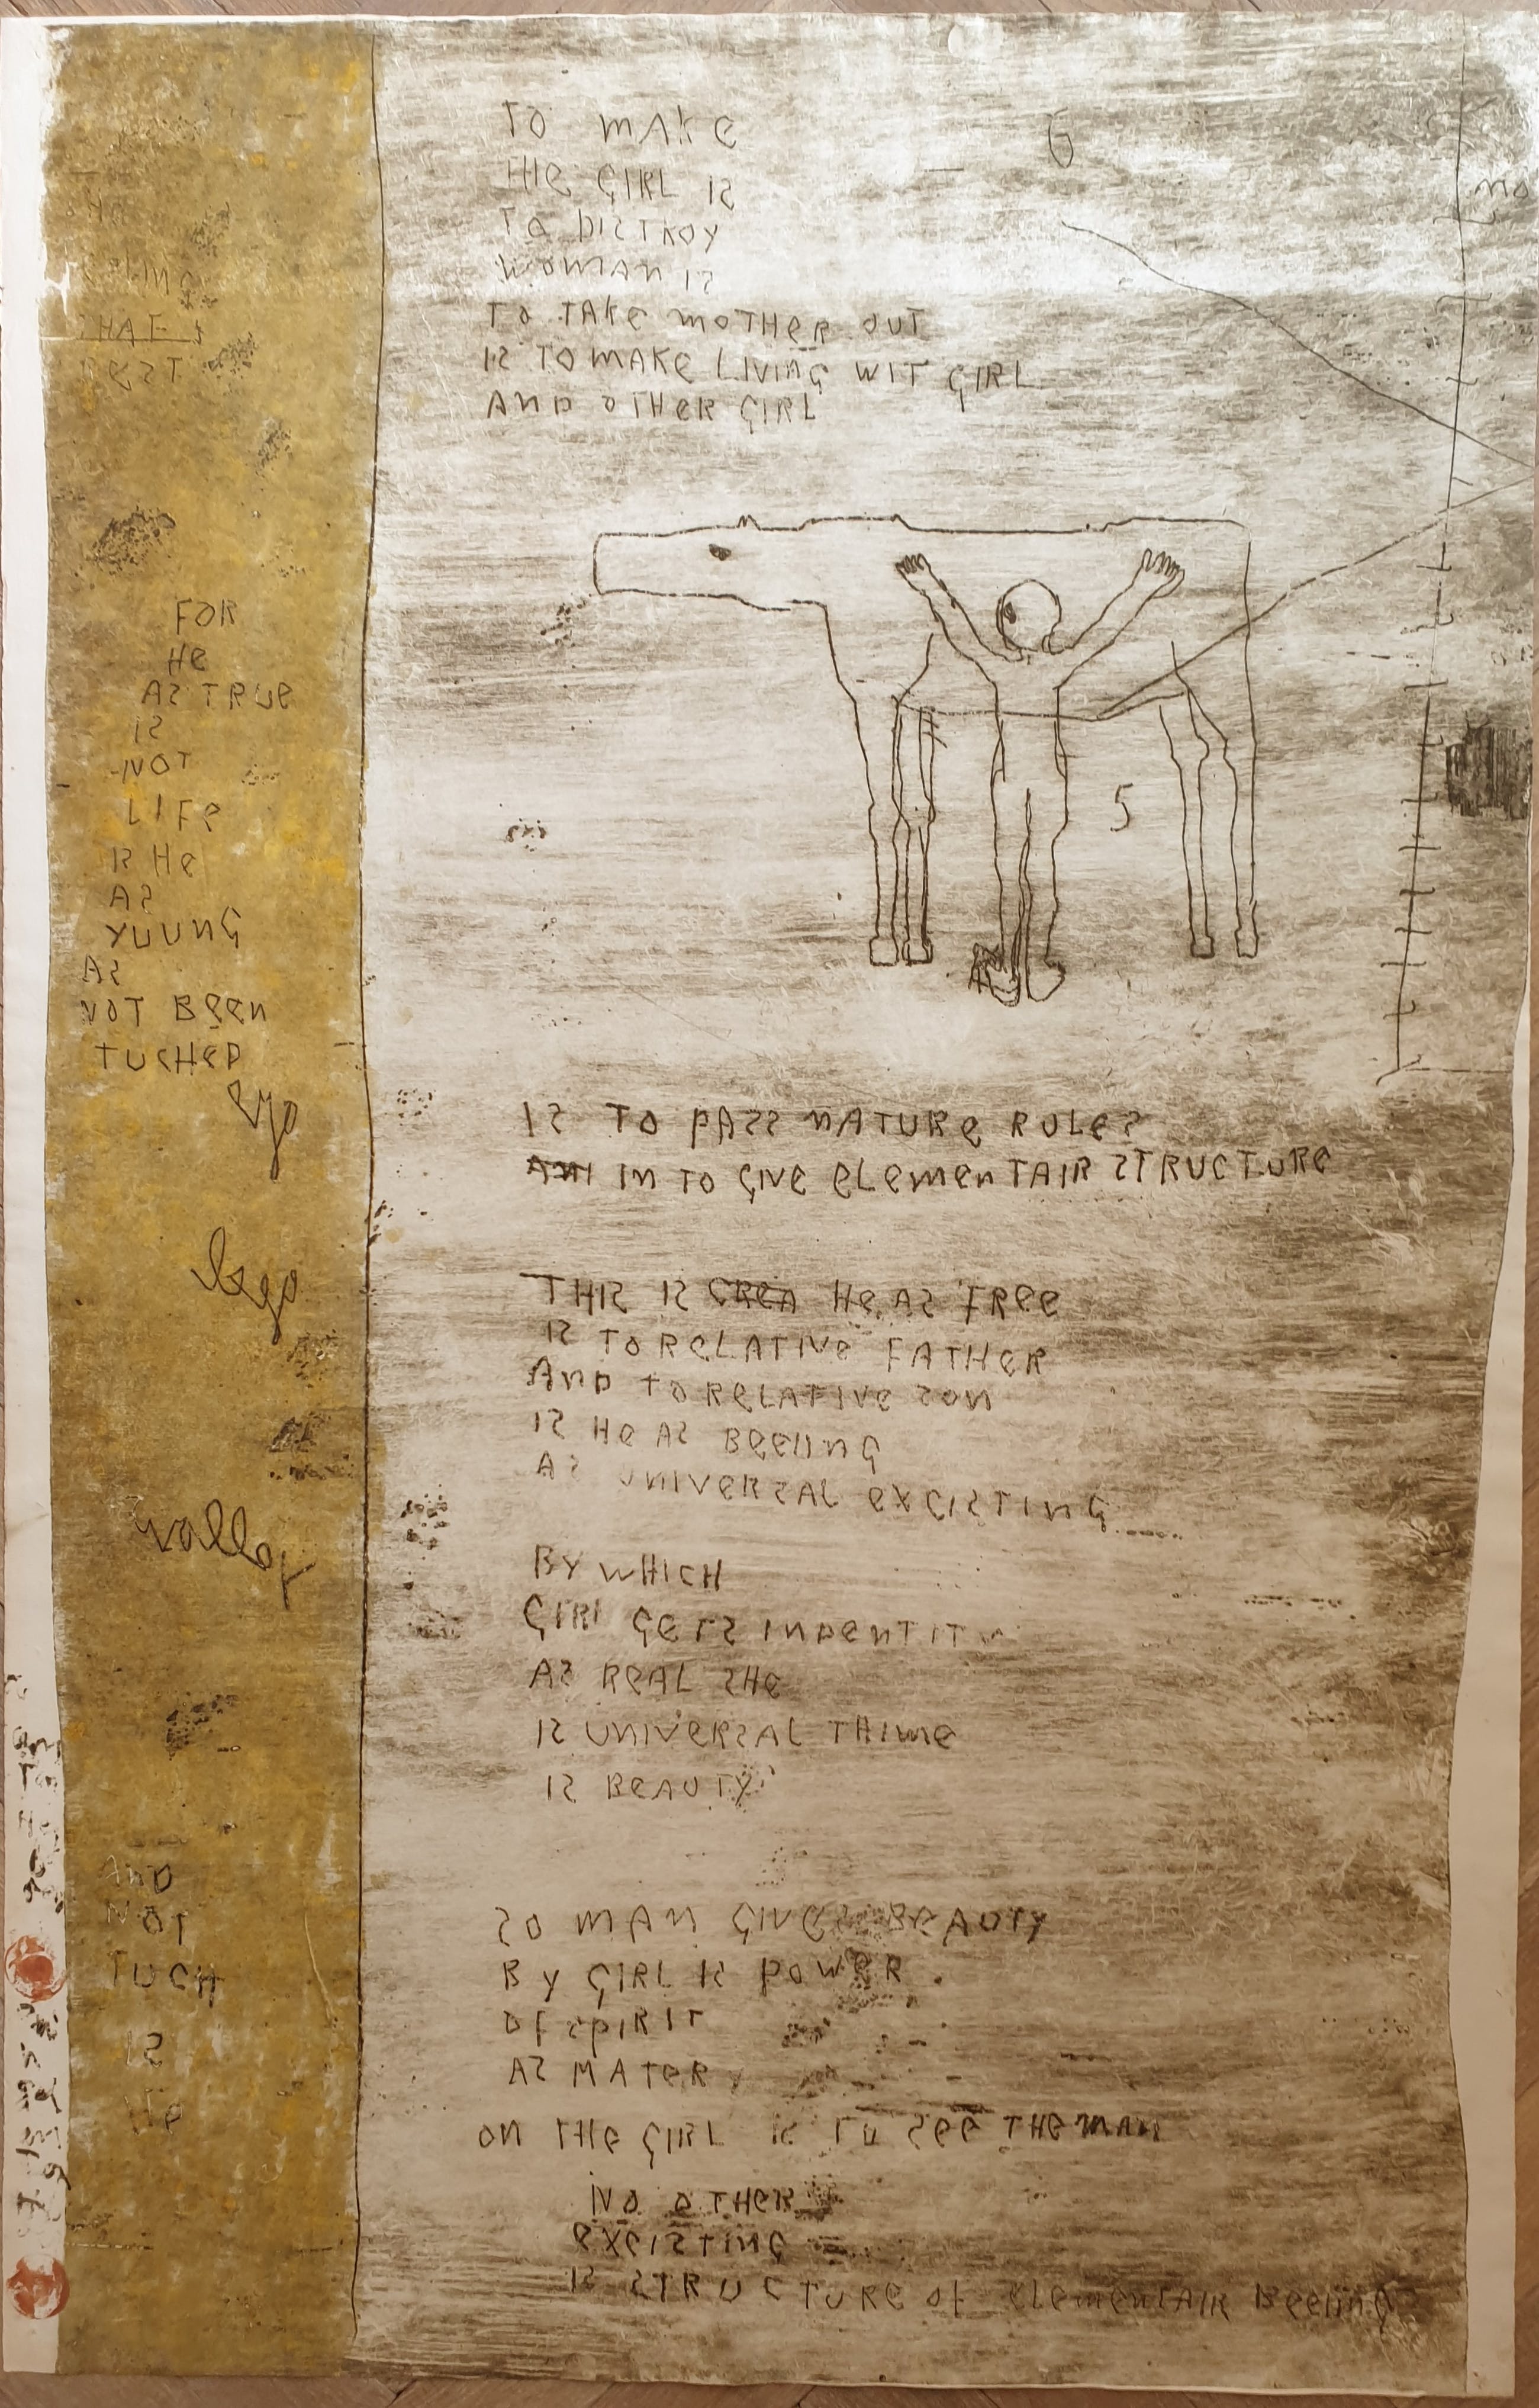 THAT
BEST
FOR
HE
AS TRUE
IS
NOT
LIFE
IS HE
AS
YUUNG
AS
NOT BEEN
TUCHED
ego
AND
NOT
TUCH
IS
HE
TO MAKE
THE GIRL IS
TO DISTROY
WOMAN IS
TO TAKE MOTHER OUT
IS TO MAKE LIVING WIT GIRL
AND OTHER GIRL
6
5
IS TO PASS NATURE RULES
IN TO GIVE ELEMENTAIR STRUCTURE
THIS IS CREA HE AS FREE
IS TO RELATIVE FATHER
AND TO RELATIVE SON
IS HE AS BEEIING
AS UNIVERSAL EXCISTING
BY WHICH
GIRL GETS INDENTIT
AS REAL SHE
IS UNIVERSAL THIME
IS BEAUTY
SO MAN GIVES BEAUTY
BY GIRL IS POWER.
OF SPIRIT
AS MATER
ON THE GIRL IS TO SEE THE MAN
NO OTHER
EXCISTING
IS STRUCTURE OF ELEMENTAIR BEEIING